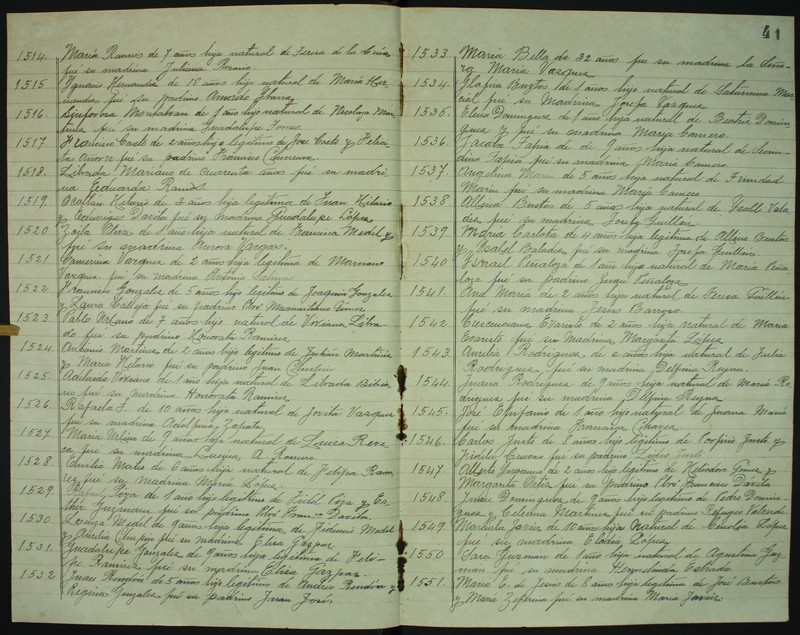 1514. Maria Ramos de 7 años hija natural de Teresa de la
fué su madrina Juliana Rosario
1515 Ignacio Hernandes de 18 años hijo natural de Maria Her
nandes fué su padrino Amado
1516. Sinforosa de 1 año hijo natural de Nicolaza Mar
fué su madrina Guadalupe Torres
1517. Francisco Casto de 2 años hijo legitimo de Jose Casto y
fué su padrino Francisco
1518. Librada Mariano de Cuarenta años fué su madri
na Eduarda Ramos
1519. Hilario de 3 años hija legitima de Juan Hilario
y fué su madrina Guadalupe Lopez
1520 Zoyla Oliva de 1 año hija natural de Francisca Medel y
fué su madrina Aurora Vargas.
1521. Camerina Vazquez de 2 años hija legitima de Mariano
Vazquez fué su madrina Antonia
1522. Francisco Gonzales de 5 años hijo legitimo de Joaquin Gonzales
y Laura Vallejo fué su padrino Pbro Maximiliano Gómez
1523. Pablo Urbano de 7 años hijo natural de Viviana Libra
do fué su padrino Honorato Ramirez
1524. Antonio Martinez de 2 años hijo legitimo de Julián Martinez
y Maria Hilario fué su padrino Juan
1525. Adelaida Viviano de 1 año hija natural de Librada Bibia
no fué su madrina Honorata Ramirez
1526. Rafaela J. de 10 años hija natural de Jovita Vazquez
fué su madrina Adelfina Zapata
1527. Maria Urbano de 9 años hija natural de Luisa
ca fué su madrina A Romero
1528. Emilia Mateo de 6 años hija natural de Felipa Ram
rez fué su madrina Maria Lopez.
1529. Rafael Poza de 1 año hijo legitimo de Fidel Poza y Es
ther Guzman fué su padrino Pbro Franco Davila
1530. Lorenza Medel de 9 años hija legitima de Fidencio Medel
y Aurelia Crispin fué su madrina Elisa Gaspar
1531. Guadalupe Gonzales de 9 años hija legitima de Feli
pe Ramirez fué su madrina Elisa Gaspar.
1532 Juan Rendon de 5 años hijo legitimo de Andres Rendon y
Regina Gonzales fué su padrino Juan José.
41
1533. Maria Bella de 32 años fué su madrina la Seño
ra Maria Vazquez
1534. Glafira Bustos de 1 años hija natural de Saturnina Mar
cial fué su Madrina Josefa Vazquez
1535. Elena Dominguez de 1 año hija natural de Beatriz Domin
guez y fué su madrina Maria Camero.
1536. Jacoba Tapia de 9 años hija natural de Secun
dina Tapia fué su madrina Maria Camero
1537. Angelina Marin de 5 años hija natural de Trinidad
Marin fué su madrina Maria Camero
1538 Albina Bustos de 5 años hija natural de Isabel Vala
des fué su madrina Josefa Guillen
1539. Maria Carlota de 4 años hija legitima de Albino Bustos
y Isabel Balades fué su madrina Josefa Guillen.
1540 Israel Peñaloza de 1 año hijo natural de Maria Peña
loza fué su padrino Juan Peñaloza
1541. Ana Maria de 2 años hija natural de Teresa Guillen
fué su madrina Jesus Barroso
1542 Cerenciana Evaristo de 2 años hija natural de Maria
Evaristo fué su Madrina Margarita Lopez
1543. Aurelia Rodriguez de 2 años hija natural de Julia
Rodriguez fué su madrina Delfina Reyna.
1544. Juana Rodriguez de 9 años hija natural de Maria Ro
driguez fué su madrina Delfina Reyna
1545. José Epifanio de 1 año hijo natural de Juana Maria
fué su madrina Francisca Chavez
1546. Carlos Justo de 8 años hijo legitimo de Porfirio Justo y
Jesus Cuevas fué su padrino Justo
1547. Alberto Inocencio de 2 años hijo legitimo de Melchor Gómez y
Margarita Ortiz fué su padrino Pbro Francisco Davila
1548. Juan Dominguez de 9 años hijo legitimo de Pedro Domin
guez y Celerina Martinez fué su padrino Refugio Valverde
1549 Marcela Javier de 10 años hija natural de Lopez
fué su madrina Eladia Lopez
1550 Clara Guzman de 1 año hija natural de Agustina Guz
man fué su madrina Hermelinda Estrada
1551. Maria E. de Jesus de 8 años hija legitima de José Bustos
y Maria Zeferina fué su madrina Maria Javier.